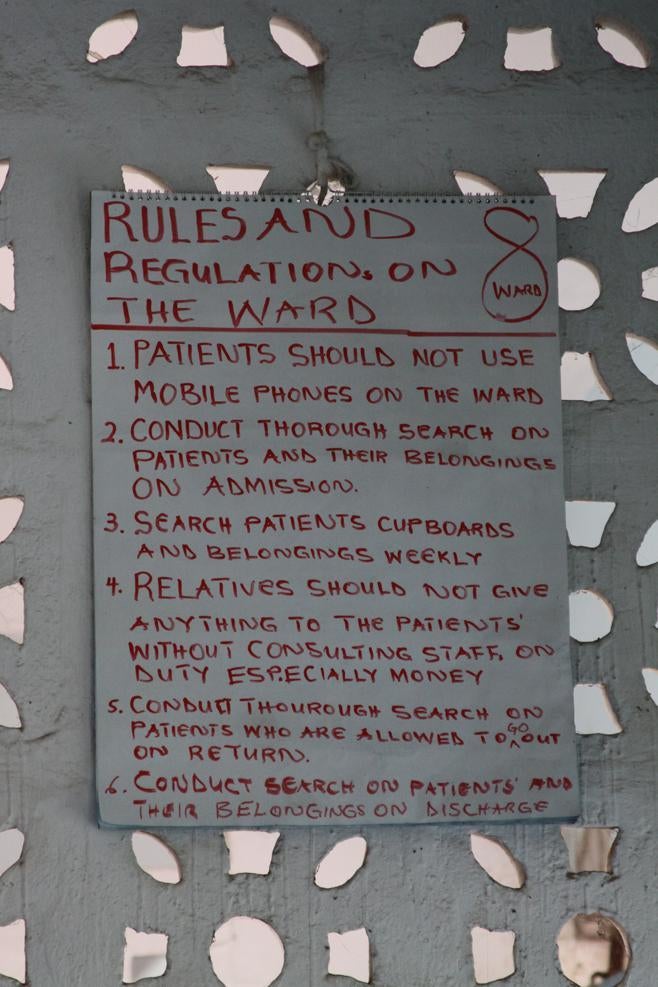 RULES AND
REGULATIONS ON
THE WARD
8
WARD
1. PATIENTS SHOULD NOT USE
MOBILE PHONES ON THE WARD
2. CONDUCT THOROUGH SEARCH ON
PATIENTS AND THEIR BELONGINGS
ON ADMISSION.
3. SEARCH PATIENTS CUPBOARDS
AND BELONGINGS WEEKLY
4. RELATIVES SHOULD NOT GIVE
ANYTHING TO THE PATIENTS'
WITHOUT CONSULTING STAFF, ON
DUTY ESPECIALLY MONEY
5. CONDUCT THOUROUGH SEARCH ON
PATIENTS WHO ARE ALLOWED TO GO OUT
ON RETURN.
6. CONDUCT SEARCH ON PATIENTS' AND
THEIR BELONGINGS ON DISCHARGE